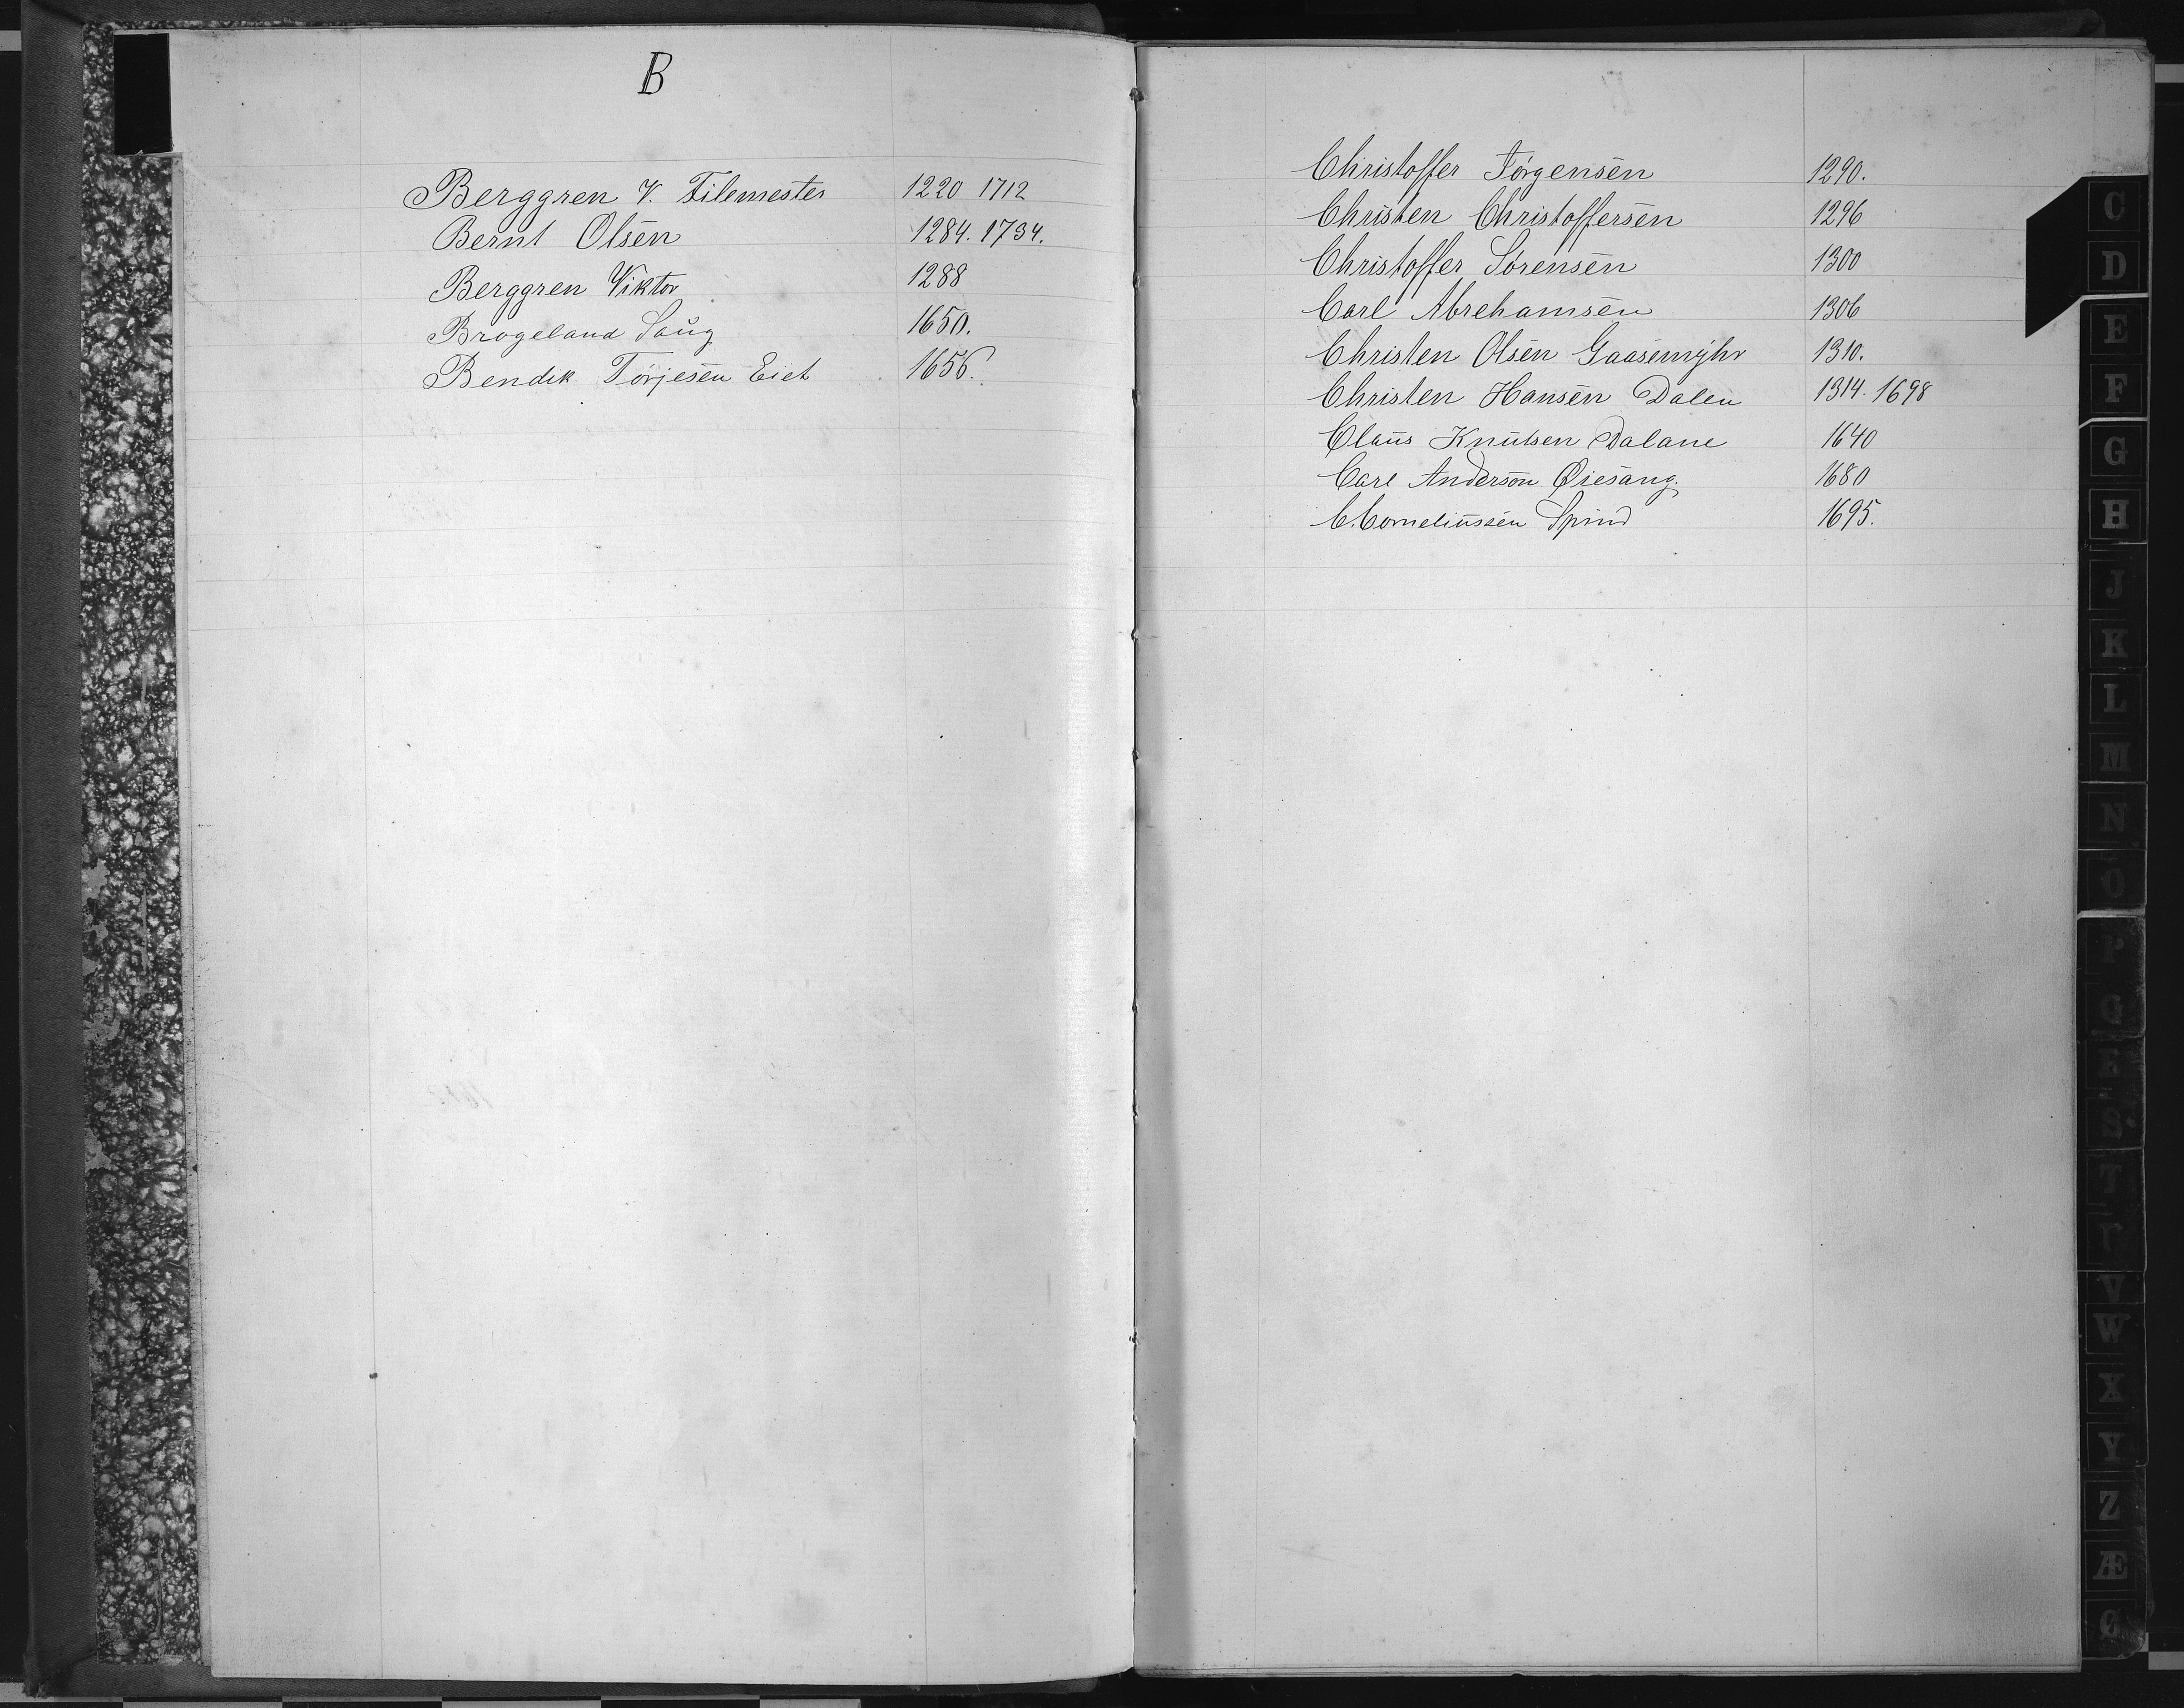 B
Berggren V. Filemester 1220 1712
Bernt Olsen 1284. 1734.
Berggren Viktor 1288
Brogeland Saug 1650.
Bendik Torjesen Eiet 1656.
Christoffer Jörgensen 1290.
Christen Christoffersen 1296
Christoffer Sörensen 1300
Carl Abrehamsen 1306
Christen Olsen Gaasemyhr 1310.
Christen Hansen Dalen 1314. 1698
Claus Knutsen Dalane 1640
Carl Anderson Øiesang. 1680
C. Corneliussen Spind 1695.
C
D
E
F
G
H
J
K
L
M
N
O
P
Q
R
S
T
V
W
X
Y
Z
Æ
Ø